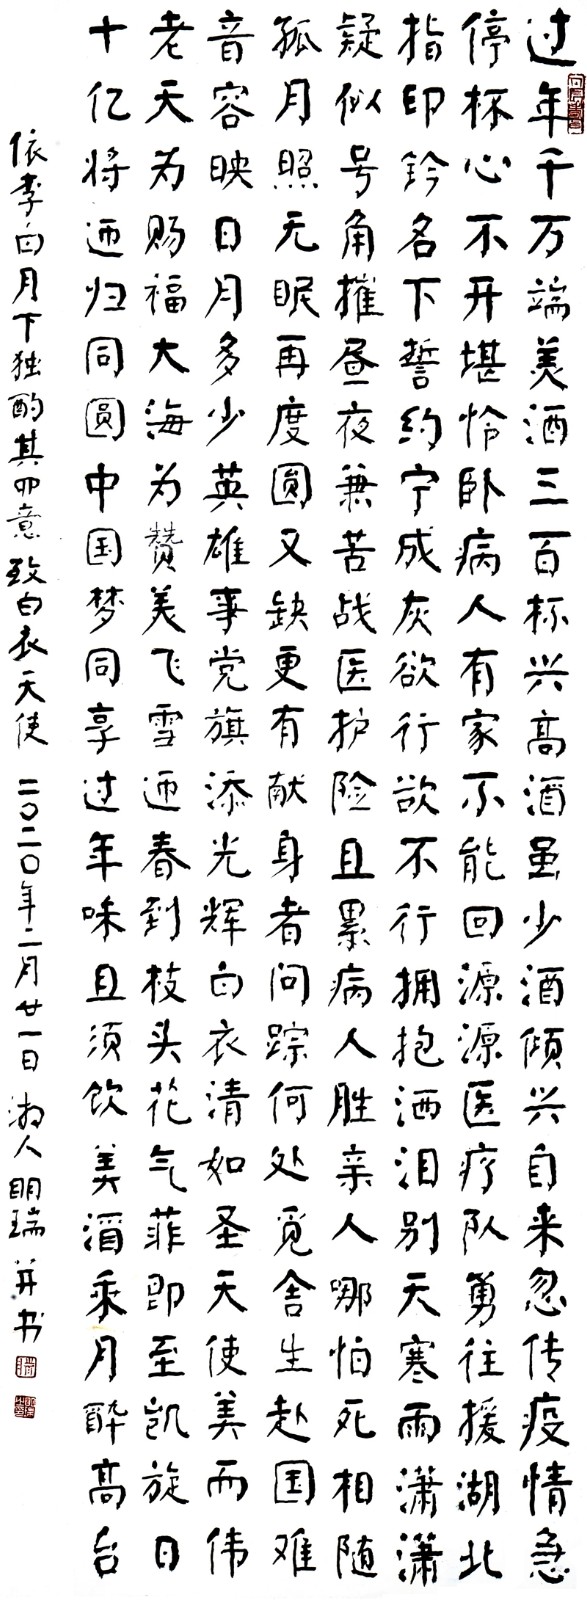 过年千万端美酒三百杯兴高酒虽少酒倾兴自来忽传疫情急
停杯心不开堪怜卧病人有家不能回源源医疗队勇往援湖北
指印钤名下誓约宁成灰欲行欲不行拥抱洒泪别天寒雨潇潇
疑似号角摧昼夜兼苦战医护险且累病人胜亲人哪怕死相随
孤月照无眠再度圆又缺更有献身者问踪何处觅舍生赴国难
音容映日月多少英雄事党旗添光辉白衣清如圣天使美而伟
老天为赐福大海为赞美飞雪迎春到枝头花气菲即至凯旋日
十亿将迎归同圆中国梦同享过年味且须饮美酒乘月醉高台
依李白月下独酌其四意致白衣天使 二〇二〇年二月廿一日 湘人明瑞并书